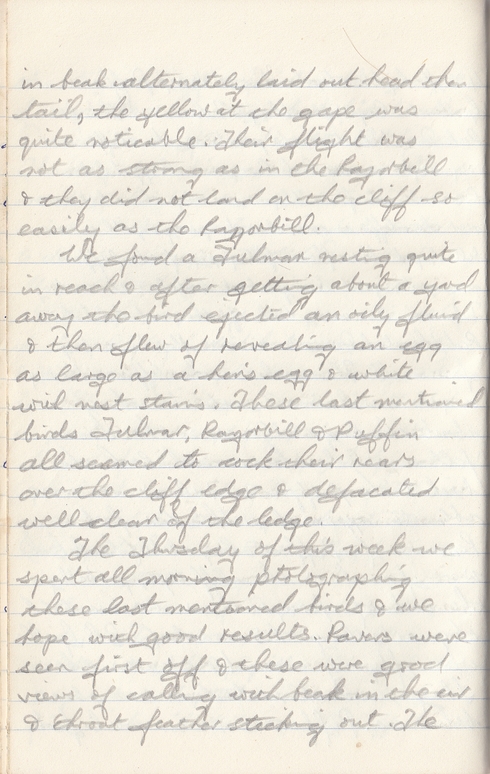 in beak alternately laid out head then
tail, the yellow at the gape was
quite noticable. Their flight was
not as strong as in the Razorbill
& they did not land on the cliff so
easily as the Razorbill.
We fond a Fulmar nesting quite
in reach & after getting about a yard
away the bird ejected an oily fluid
& then flew of revealing an egg
as large as a hen's egg & white
with nest stains. These last mentioned
birds Fulmar, Razorbill & Puffin
all seemed to cock their rears
over the cliff edge & defacated
well clear of the ledge.
The Thursday of this week we
spent all morning photographing
these last mentioned birds & we
hope with good results. Ravens were
seen first off & these were good
views of calling with beak in the air
& throat feather sticking out. The